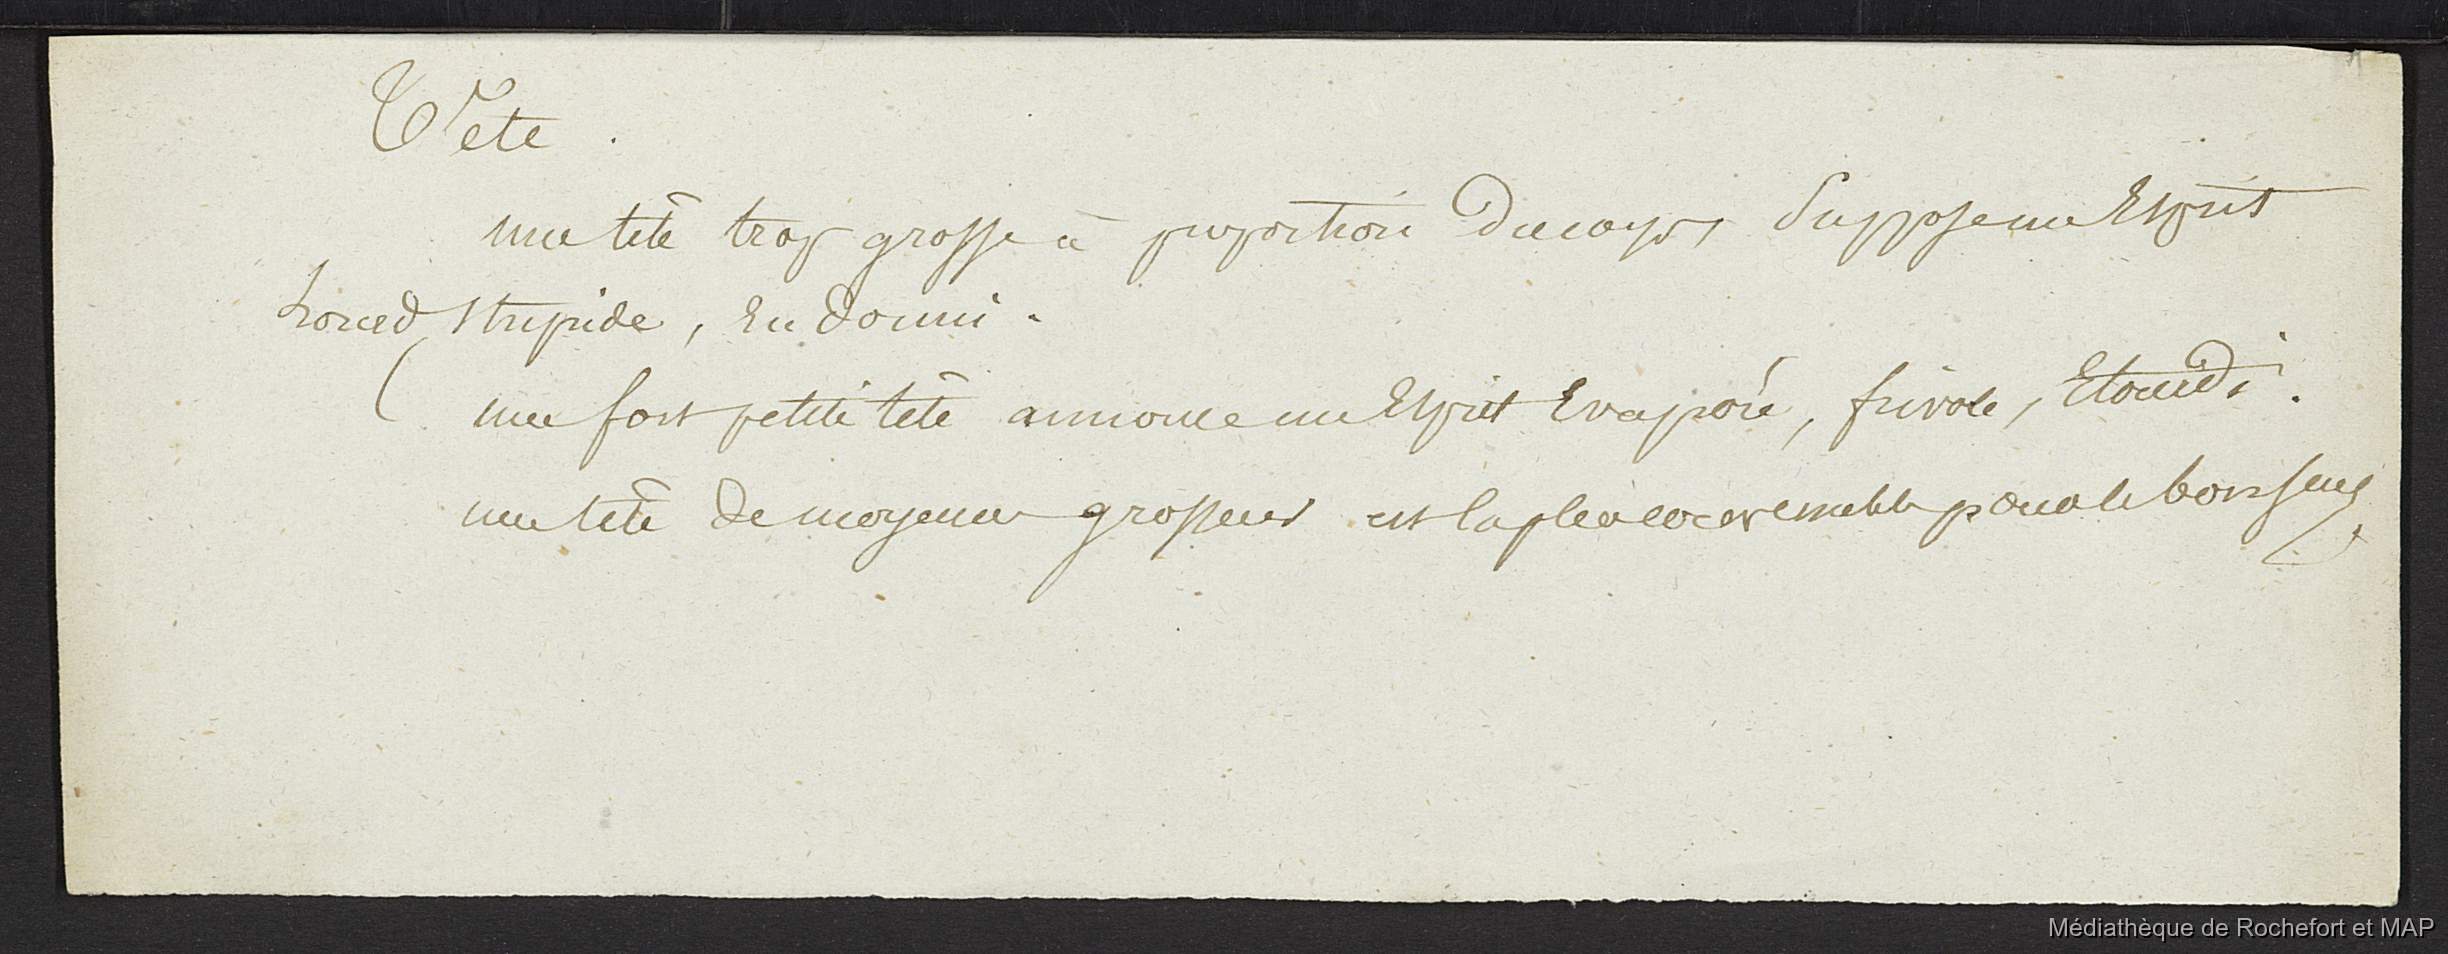 Tete.
une tetê trop grosse à proportion du corps suppose un Esprit
lourd stupide, Endormi.
( une fort petite tête annonce un Esprit Evaporé, frivole, Etourdi.
une tetê de moyenne grosseur est la plus convenable pour le bon sens
Médiathèque de Rochefort et MAP